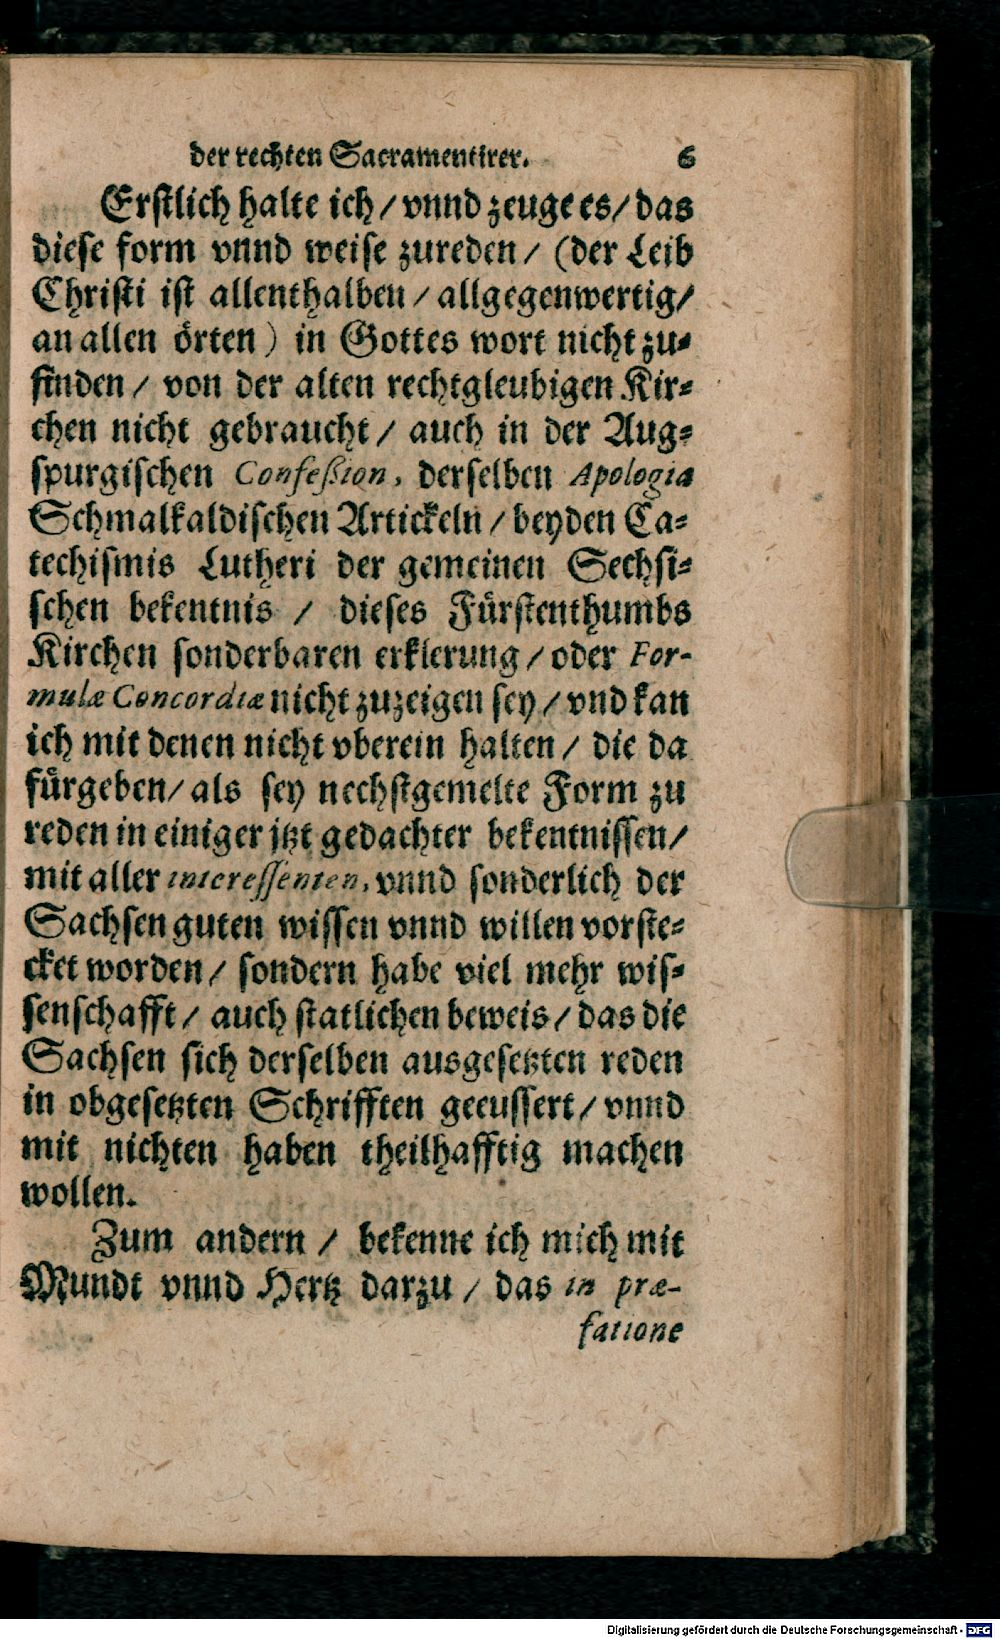 der rechten Sacramentirer. 6
Erstlich halte ich / vnnd zeuge es / das
diese form vnnd weise zureden / (der Leib
Christi ist allenthalben / allgegenwertig /
an allen örten) in Gottes wort nicht zu-
finden / von der alten rechtgleubigen Kir-
chen nicht gebraucht / auch in der Aug-
spurgischen Confeßion, derselben Apologia
Schmalkaldischen Artickeln / beyden Ca-
techismis Lutheri der gemeinen Sechsi-
schen bekentnis / dieses Fürstenthumbs
Kirchen sonderbaren erklerung / oder For-
mulæ Concordiæ nicht zuzeigen sey / vnd kan
ich mit denen nicht vberein halten / die da
fürgeben / als sey nechstgemelte Form zu
reden in einiger jtzt gedachter bekentnissen /
mit aller interessenten, vnnd sonderlich der
Sachsen guten wissen vnnd willen vorste-
cket worden / sondern habe viel mehr wis-
senschafft / auch statlichen beweis / das die
Sachsen sich derselben ausgesetzten reden
in obgesetzten Schrifften geeussert / vnnd
mit nichten haben theilhafftig machen
wollen.
Zum andern / bekenne ich mich mit
Mundt vnnd Hertz darzu / das in præ-
fatione
Digitalisierung gefördert durch die Deutsche Forschungsgemeinschaft - DFG